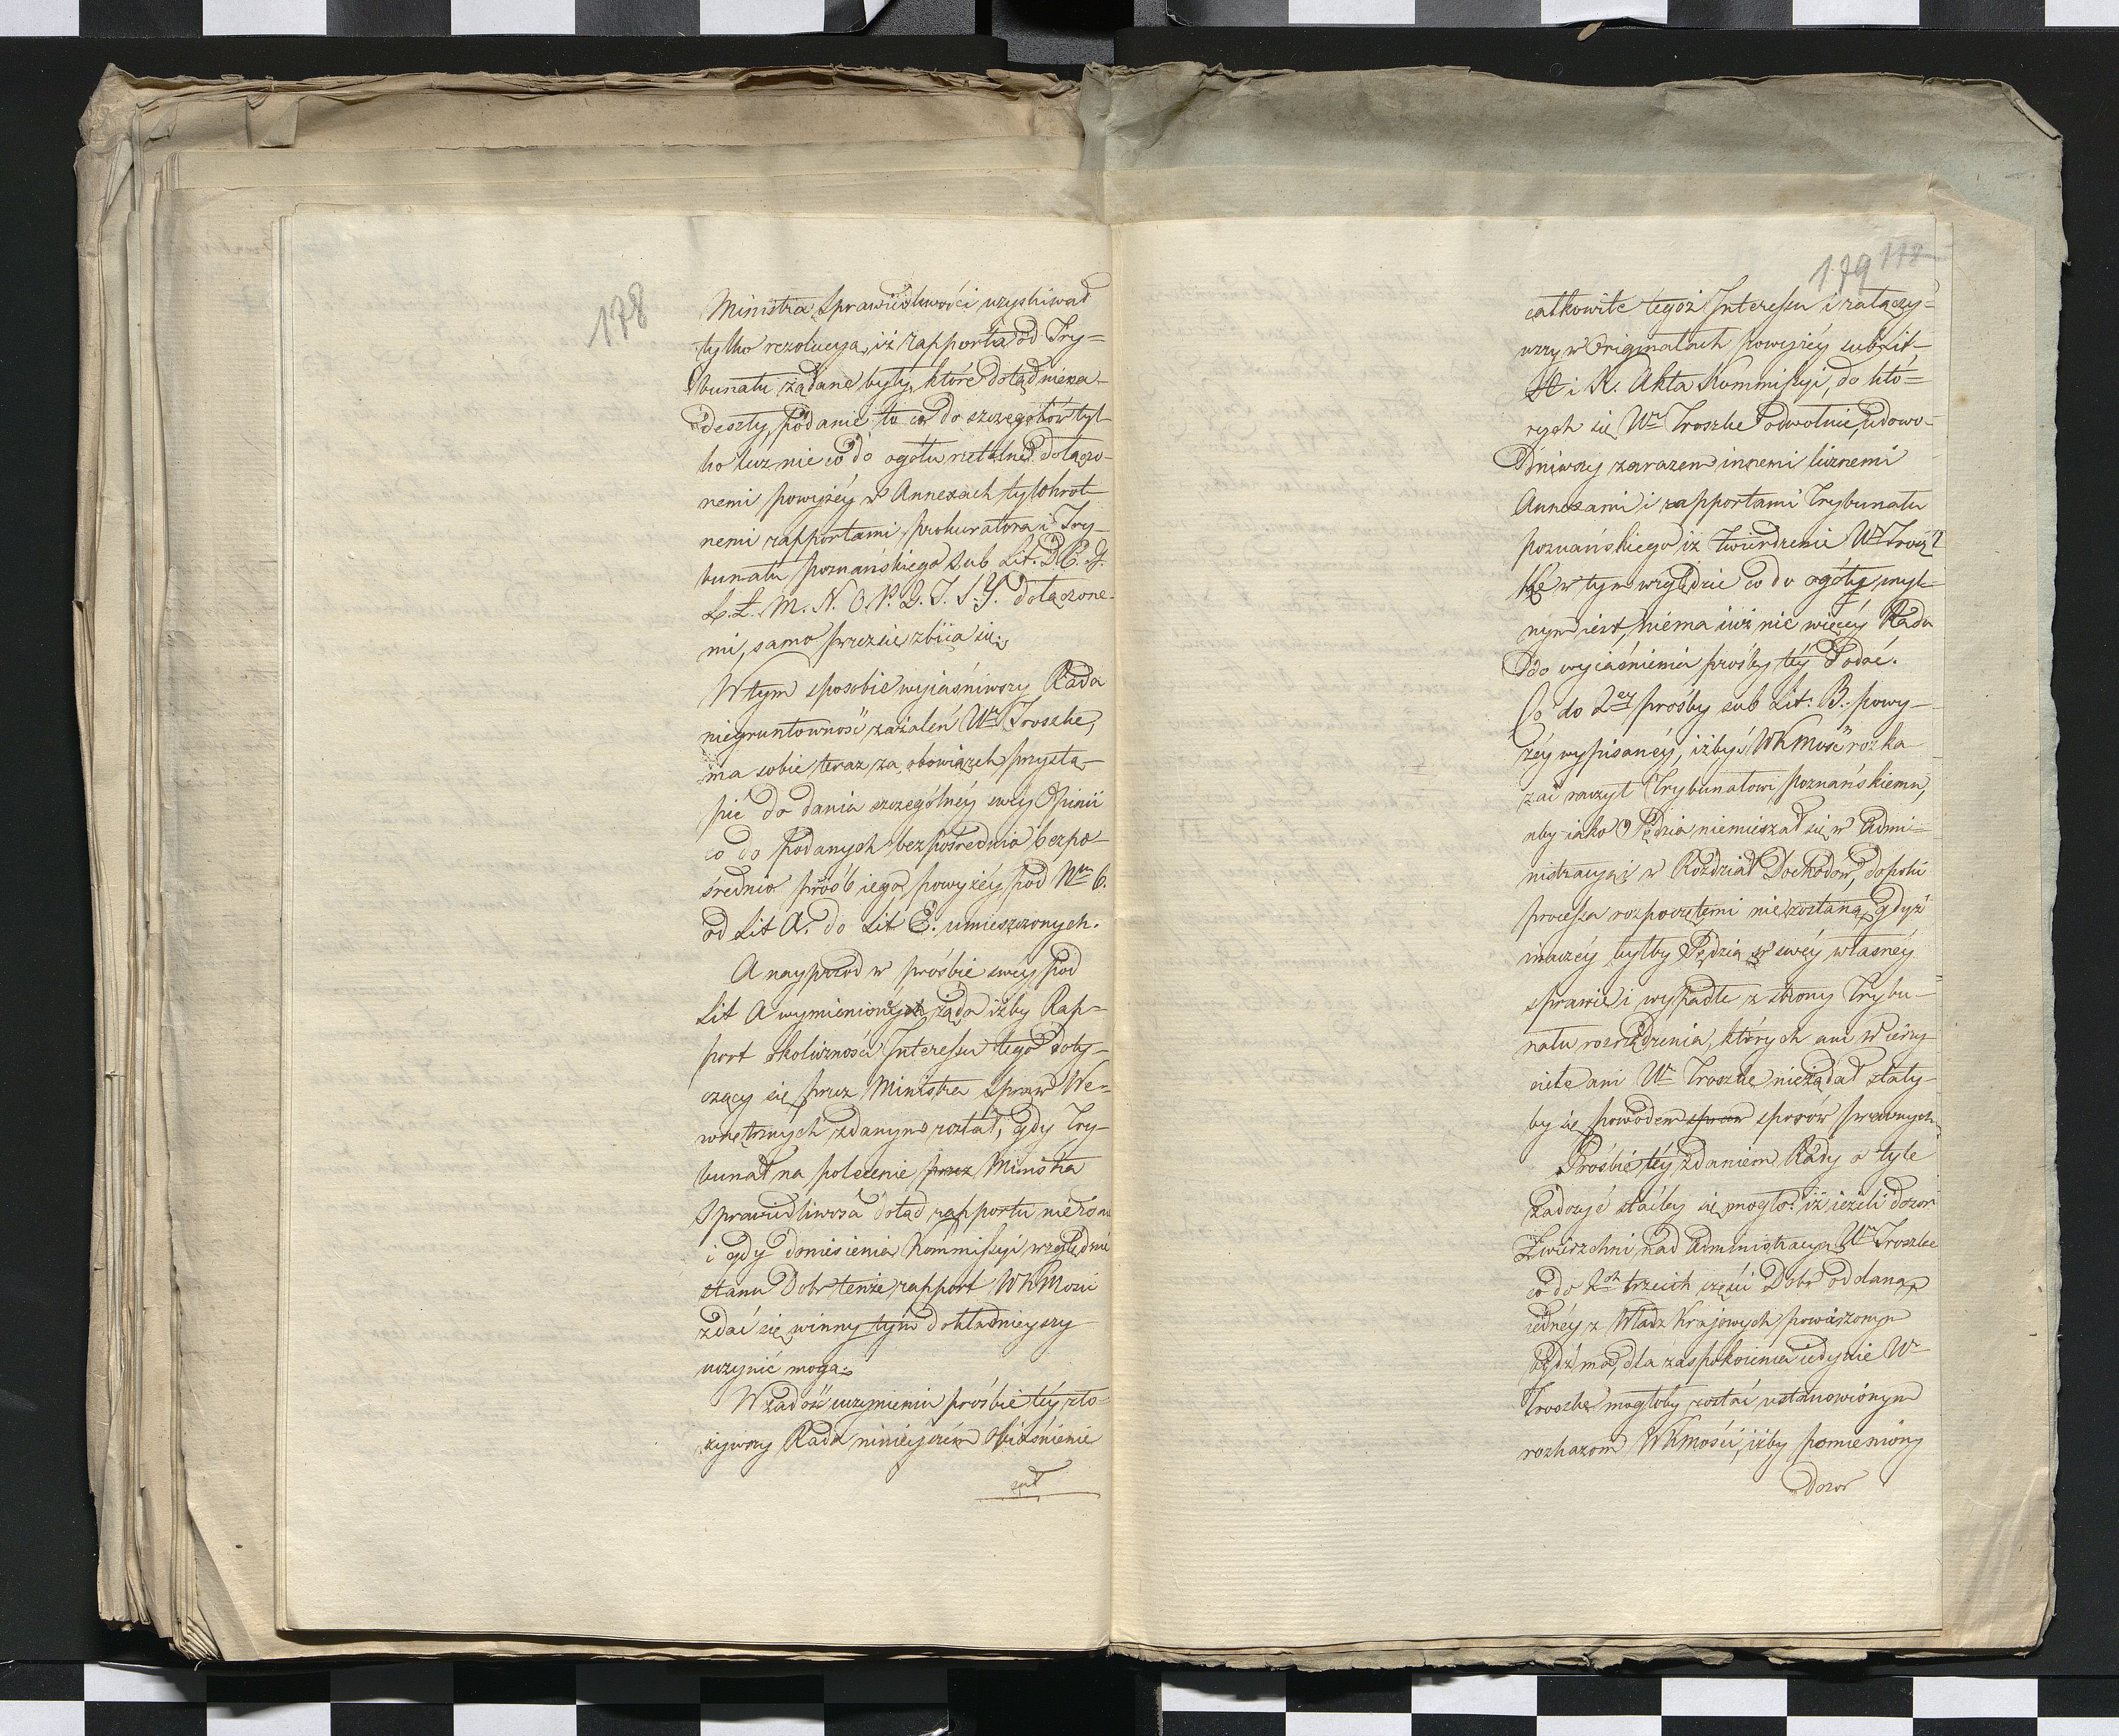 178
Ministra Sprawiedliwości uzyskiwał
tylko rezolucyą, iż rapporta od Try=
bunału żądane były, które dotąd niena-
deszły, podanie to co do szczegołów tyl-
ko lecz nie co do ogołu rzetelne dołączo-
nemi powyżéy w Annexach tylokrot-
nemi rapportami prokuratora i Try-
bunału poznańskiego sub Lit. D. E. G.
L. Ł. M. N. O. P. Q. T. S. Y. dołączone-
mi, samo przez się zbiia się.
W tym sposobie wyiaśniwszy Rada
niegruntowność zażaleń Wo Troszke,
ma sobie teraz za obowiązek przystą-
pić do dania szczególnéy swéy Opinii
co do podanych bezpośrednio bezpo-
średnio próśb iego powyżéy pod Nrm 6.
od Lit A. do Lit E. umieszczonych.
A nayprzod w prośbie swéy pod
Lit A wymienionéy żąda iżby Rap-
port okoliczności Interessu tego doty-
czący się przez Ministra Spraw We-
wnętrznych zdanym został, gdy Try-
bunał na polecenie przez Ministra
Sprawiedliwości dotąd rapportu
i gdy doniesienia Kommissyi względnie
stanu Dobr tenże rapport WKMości
zdać się winny tym dokładnieyszy
uczynić mogą.
W zadość uczynieniu prośbie téy zło-
żywszy Rada ninieyszém Obiaśnienie
cał
179 118
całkowite tegoż Interessu i załączy=
wszy w Originałach powyżéy sub Lit-
H i K. Akta Kommissyi, do któ=
rych się Wr Troszke odwołuie, udowo-
dniwszy zarazem innemi licznemi
Annexami i rapportami Trybunału
poznańskiego iż twierdzenie Wr Trosz=
ke w tym względzie co do ogółu myl-
nym iest, niema iuż nic więcéy Rada
do wyiaśnienia prośby téy dodać.
Co do 2ey prośby sub Lit. B. powy-
żéy wypisanéy, iżbyś WKMość rozka
zać raczył Trybunałowi poznańskiemu,
aby iako Sędzia niemieszał się w Admi=
nistracyą i w Rozdział Dochodów, dopoki
processa rozpoczętemi niezostaną, gdyż
inaczéy byłby Sędzią w swéy własnéy
sprawie i wypadłe z strony Trybu-
nału rozrządzenia, których ani Wierzy-
ciele ani Wr Troszke nieżądał stały-
by się powodem spraw sporów prawnych.
Prośbie téy zdaniem Rady o tyle
zadosyć staćby się mogło: iż ieżeli dozor
Zwierzchni nad Administracyą Wr Troszke
co do 2ch trzecich części Dobr oddaną
iednéy z Władz Krajowych powierzonym
bydź ma, dla zaspokoienia iedynie Wr
Troszke mogłoby zostać ustanowionym
rozkazem WKMości, iżby pomieniony
Dozor